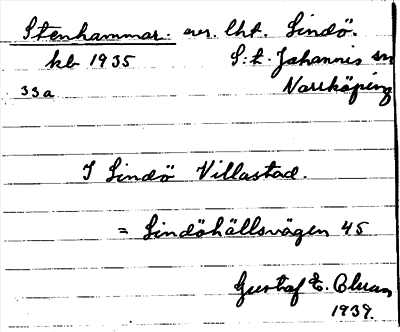 Stenhammar. avs. lht. Lindö.
kb 1935 S:t. Johannis sn
33a Norrköping
I Lindö Villastad.
= Lindöhällsvägen 45
Gustaf E. Cluan
1939.